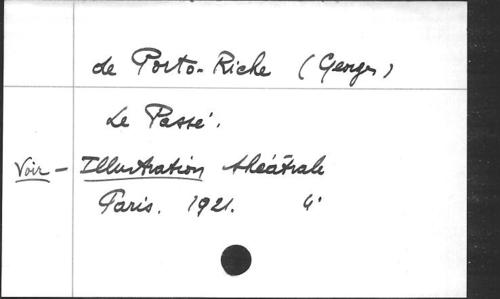 de Porto-Riche (Georges)
Le Passé.
Voir - Illustration théâtrale
Paris. 1921. 4°